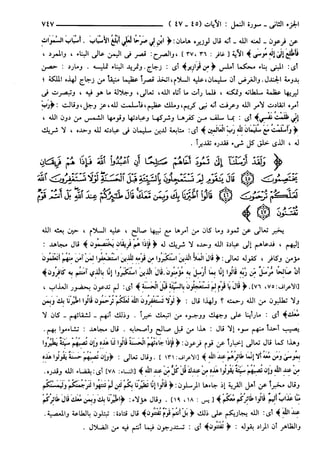 الجزء الثاني - سورة النمل : الآيات (٤٥ - ٤٧)
٧٤٧
عن فرعون - لعنه الله - أنه قال لوزيره هامان: ﴿ابْنِ لِي صَرْحًا لَعَلِّي أَبْلُغُ الْأَسْبَابَ . أَسْبَابَ السَّمَوَاتِ
فَأَطَّلِعَ إِلَى إِلَهِ مُوسَى﴾ الآية [غافر : ٣٦ ، ٣٧] ، والصرح: قصر في اليمن عالي البناء ، والممرد ،
أي: المبني بناء محكما أملس ﴿مِنْ قَوَارِيرَ﴾ أي : زجاج. وتمريد البناء تمليسه . ومارد : حصن
بدومة الجندل. والغرض أن سليمان، عليه السلام، اتخذ قصراً عظيماً منيفاً من زجاج لهذه الملكة ؛
ليريها عظمة سلطانه وتمكنه ، فلما رأت ما آتاه الله، تعالى، وجلالة ما هو فيه ، وتبصرت في
أمره انقادت لأمر الله وعرفت أنه نبي كريم، وملك عظيم، فأسلمت لله، عز وجل، وقالت : ﴿رَبِّ
إِنِّي ظَلَمْتُ نَفْسِي﴾ أي : بما سلف من كفرها وشركها وعبادتها وقومها الشمس من دون الله ،
﴿وَأَسْلَمْتُ مَعَ سُلَيْمَانَ لِلَّهِ رَبِّ الْعَالَمِينَ﴾ أي : متابعة لدين سليمان في عبادته لله وحده ، لا شريك
له ، الذي خلق كل شيء فقدره تقديراً .
وَلَقَدْ أَرْسَلْنَا إِلَى ثَمُودَ أَخَاهُمْ صَالِحًا أَنِ اعْبُدُوا اللَّهَ فَإِذَا هُمْ فَرِيقَانِ يَخْتَصِمُونَ
﴿٤٥﴾ قَالَ يَا قَوْمِ لِمَ تَسْتَعْجِلُونَ بِالسَّيِّئَةِ قَبْلَ الْحَسَنَةِ لَوْلَا تَسْتَغْفِرُونَ اللَّهَ لَعَلَّكُمْ
تُرْحَمُونَ ﴿٤٦﴾ قَالُوا اطَّيَّرْنَا بِكَ وَبِمَنْ مَعَكَ قَالَ طَائِرُكُمْ عِنْدَ اللَّهِ بَلْ أَنْتُمْ قَوْمٌ
تُفْتَنُونَ ﴿٤٧﴾
يخبر تعالى عن ثمود وما كان من أمرها مع نبيها صالح ، عليه السلام ، حين بعثه الله
إليهم ، فدعاهم إلى عبادة الله وحده لا شريك له ﴿فَإِذَا هُمْ فَرِيقَانِ يَخْتَصِمُونَ﴾ قال مجاهد :
مؤمن وكافر ، كقوله تعالى: ﴿قَالَ الْمَلَأُ الَّذِينَ اسْتَكْبَرُوا مِنْ قَوْمِهِ لِلَّذِينَ اسْتُضْعِفُوا لِمَنْ آمَنَ مِنْهُمْ أَتَعْلَمُونَ
أَنَّ صَالِحًا مُرْسَلٌ مِنْ رَبِّهِ قَالُوا إِنَّا بِمَا أُرْسِلَ بِهِ مُؤْمِنُونَ . قَالَ الَّذِينَ اسْتَكْبَرُوا إِنَّا بِالَّذِي آمَنْتُمْ بِهِ كَافِرُونَ﴾
[الأعراف: ٧٥، ٧٦]، ﴿قَالَ يَا قَوْمِ لِمَ تَسْتَعْجِلُونَ بِالسَّيِّئَةِ قَبْلَ الْحَسَنَةِ﴾ أي: لم تدعون بحضور العذاب ،
ولا تطلبون من الله رحمته ؟ ولهذا قال : ﴿لَوْلَا تَسْتَغْفِرُونَ اللَّهَ لَعَلَّكُمْ تُرْحَمُونَ قَالُوا اطَّيَّرْنَا بِكَ وَبِمَنْ
مَعَكَ﴾ أي : ما رأينا على وجهك ووجوه من اتبعك خيراً . وذلك أنهم - لشقائهم - كان لا
يصيب أحداً منهم سوء إلا قال : هذا من قبل صالح وأصحابه . قال مجاهد : تشاءموا بهم.
وهذا كما قال تعالى إخباراً عن قوم فرعون: ﴿فَإِذَا جَاءَتْهُمُ الْحَسَنَةُ قَالُوا لَنَا هَذِهِ وَإِنْ تُصِبْهُمْ سَيِّئَةٌ يَطَّيَّرُوا
بِمُوسَى وَمَنْ مَعَهُ أَلَا إِنَّمَا طَائِرُهُمْ عِنْدَ اللَّهِ﴾ [الأعراف: ١٣١] . وقال تعالى : ﴿وَإِنْ تُصِبْهُمْ حَسَنَةٌ يَقُولُوا هَذِهِ
مِنْ عِنْدِ اللَّهِ وَإِنْ تُصِبْهُمْ سَيِّئَةٌ يَقُولُوا هَذِهِ مِنْ عِنْدِكَ قُلْ كُلٌّ مِنْ عِنْدِ اللَّهِ﴾ [النساء: ٧٨] أي: بقضاء الله وقدره.
وقال مخبراً عن أهل القرية إذ جاءها المرسلون: ﴿قَالُوا إِنَّا تَطَيَّرْنَا بِكُمْ لَئِنْ لَمْ تَنْتَهُوا لَنَرْجُمَنَّكُمْ وَلَيَمَسَّنَّكُمْ
مِنَّا عَذَابٌ أَلِيمٌ قَالُوا طَائِرُكُمْ مَعَكُمْ﴾ [يس : ١٨ ، ١٩] . وقال هؤلاء: ﴿اطَّيَّرْنَا بِكَ وَبِمَنْ مَعَكَ قَالَ طَائِرُكُمْ
عِنْدَ اللَّهِ﴾ أي: الله يجازيكم على ذلك ﴿بَلْ أَنْتُمْ قَوْمٌ تُفْتَنُونَ﴾ قال قتادة: تبتلون بالطاعة والمعصية.
والظاهر أن المراد بقوله : ﴿تُفْتَنُونَ﴾ أي : تستدرجون فيما أنتم فيه من الضلال .